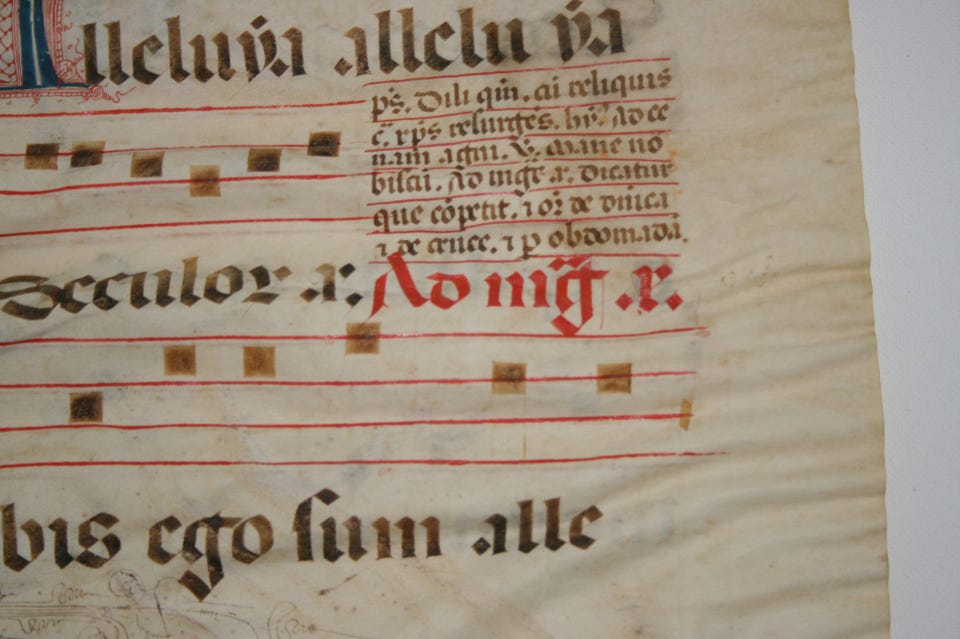 lleluya alleluya
ps. Dili qm. cū reliquis
c̄. xp̄s resurgēs. hy. Ad ce
nam agni. v. mane no
biscū. Ad mḡt a. dicatur
que cōpetit. ⁊ or̄ de dn̄ica
⁊ de cruce. ⁊ p obdomadā.
Seculor a. Ad mg̅ a.
bis ego sum alle